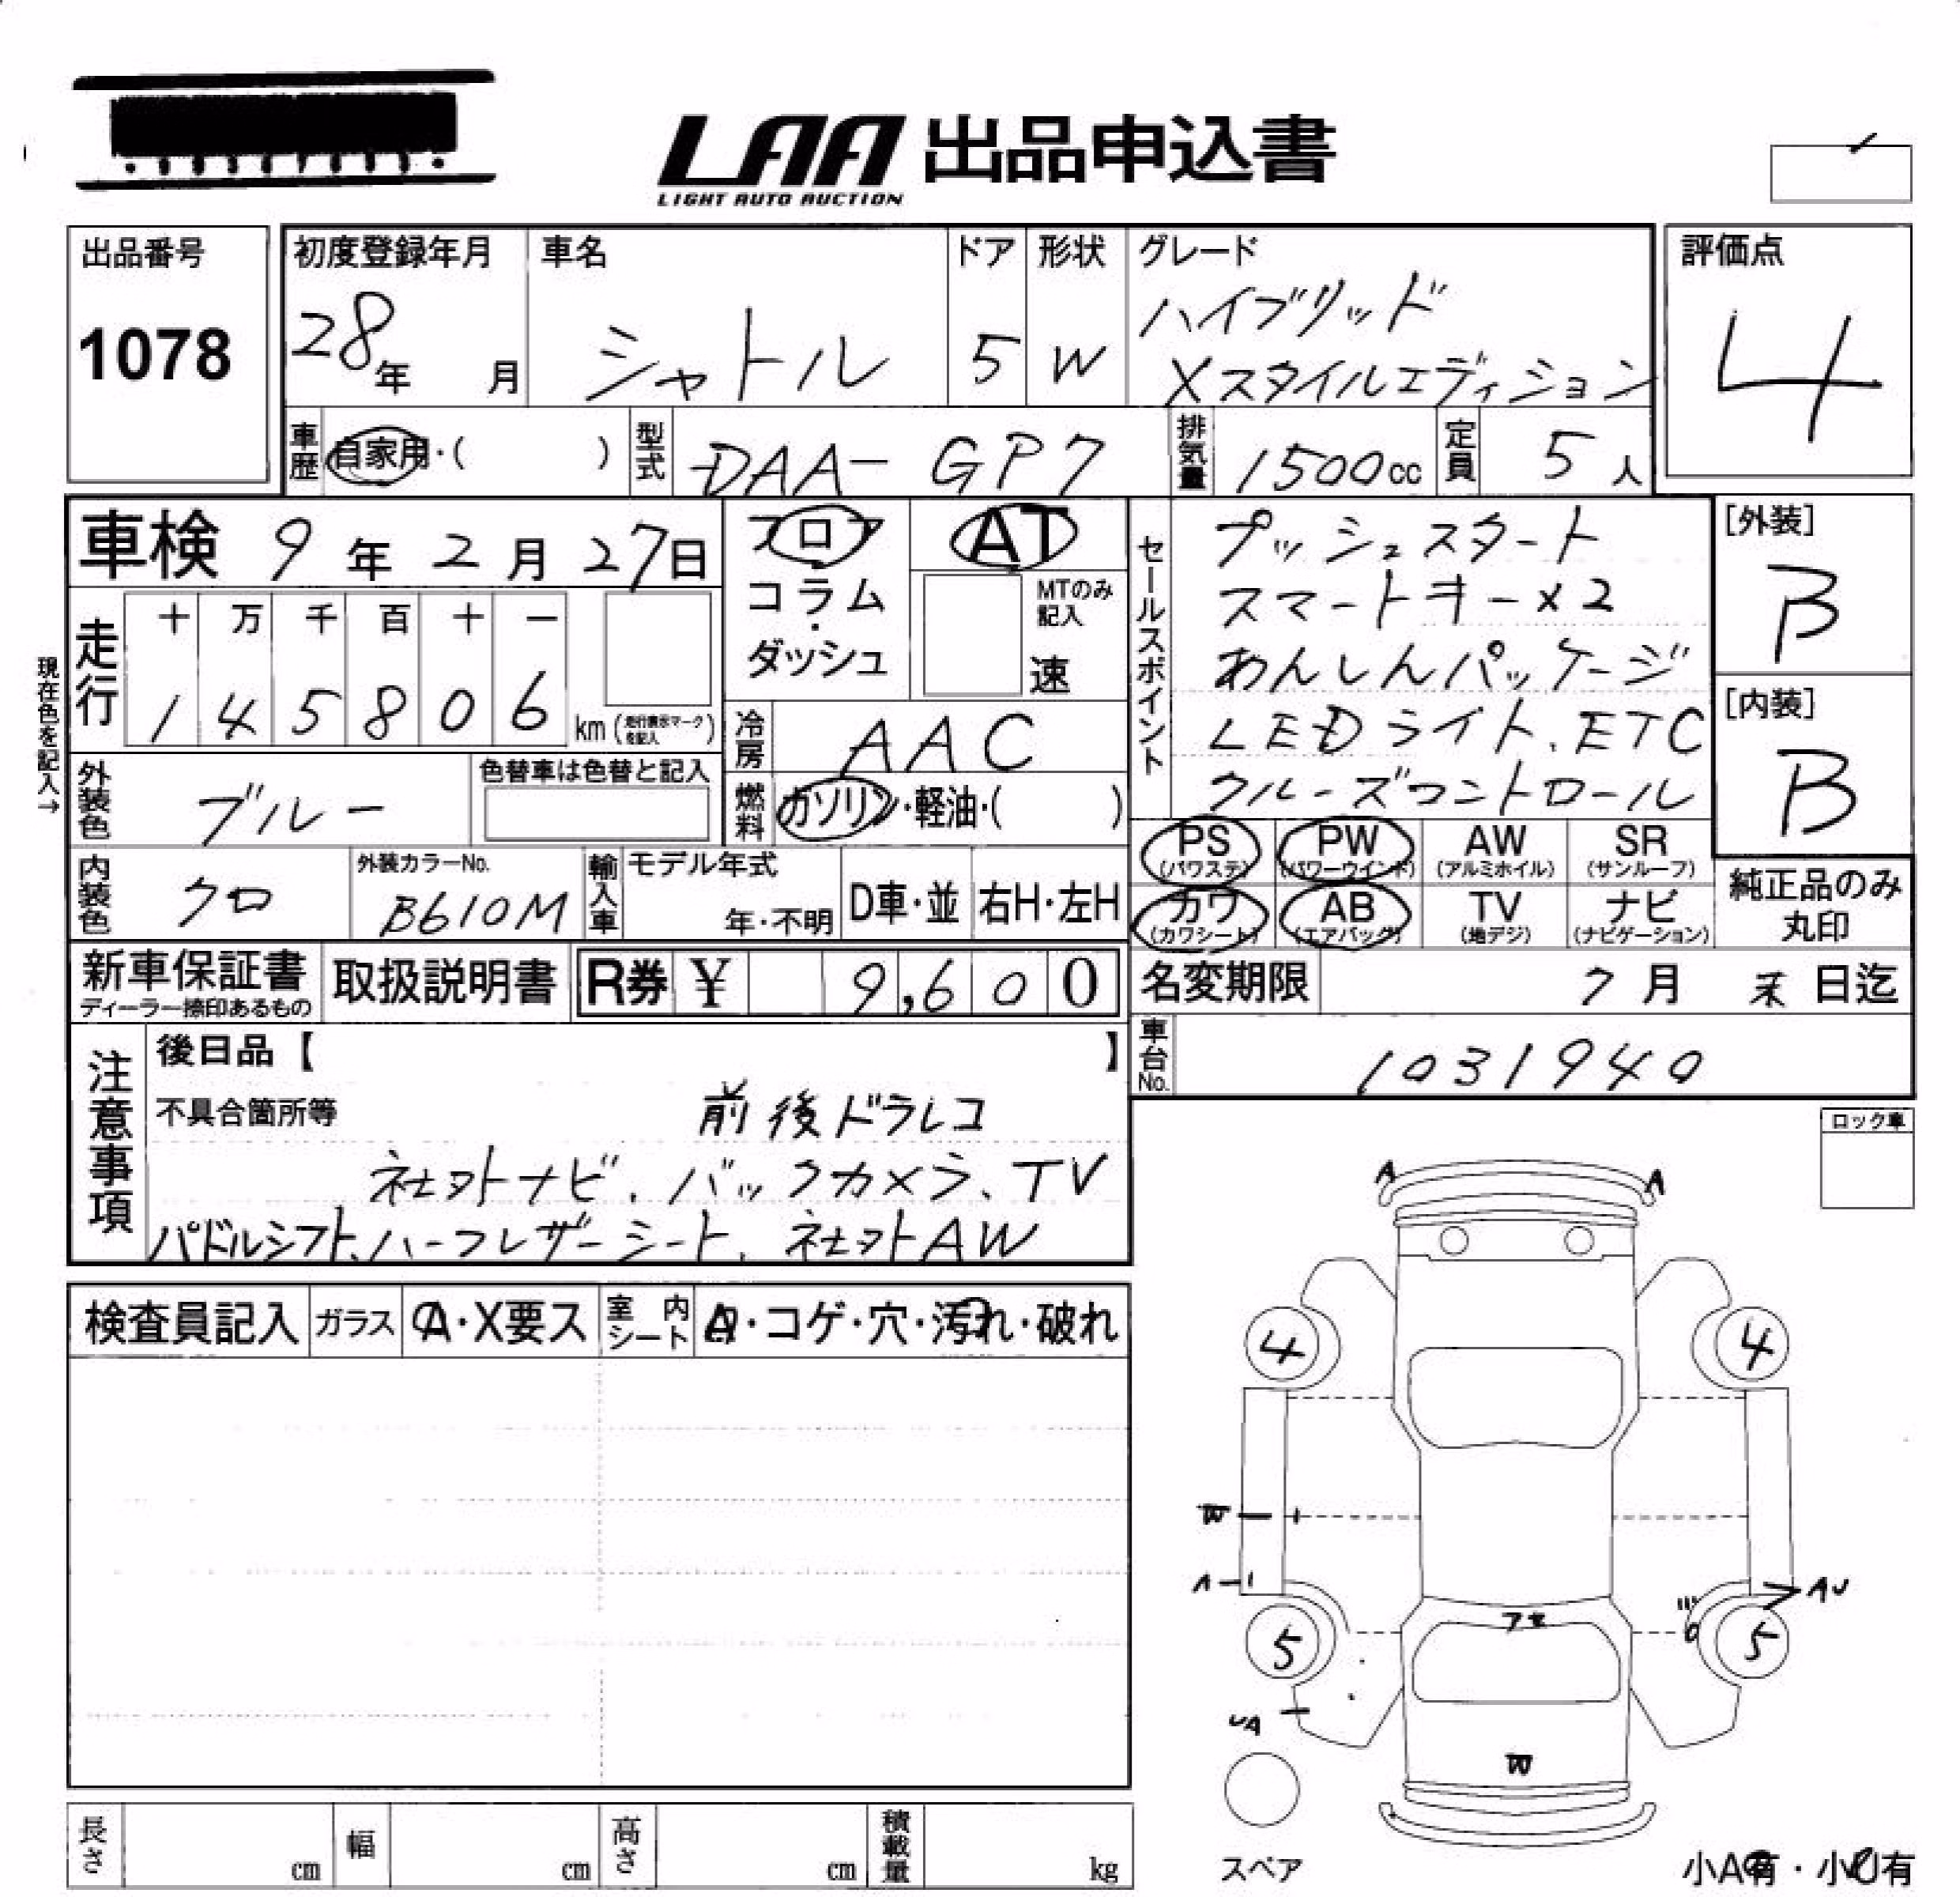 LAA 出品申込書
LIGHT AUTO AUCTION
出品番号
1078
初度登録年月
28年 月
車名
シャトル
ドア
5
形状
W
グレード
ハイブリッド
Xスタイルエディション
評価点
4
車歴 自家用・( )
型式 DAA-GP7
排気量 1500cc
定員 5人
車検 9年2月27日
フロア
コラム・
ダッシュ
AT
MTのみ
記入
速
現在色を記入→
走行
十 万 千 百 十 一
1 4 5 8 0 6 km (走行表示マークを記入)
冷房 AAC
燃料 ガソリン・軽油・( )
外装色 ブルー
色替車は色替と記入
内装色 クロ
外装カラーNo.
B610M
輸入車
モデル年式
年・不明
D車・並
右H・左H
セールスポイント
プッシュスタート
スマートキー×2
あんしんパッケージ
LEDライト、ETC
クルーズコントロール
[外装]
B
[内装]
B
PS (パワステ)
PW (パワーウインド)
AW (アルミホイル)
SR (サンルーフ)
カワ (カワシート)
AB (エアバッグ)
TV (地デジ)
ナビ (ナビゲーション)
純正品のみ
丸印
新車保証書
ディーラー捺印あるもの
取扱説明書
R券 ¥ 9,600
名変期限 7月 末日迄
車台No. 1031940
注意事項
後日品【 】
不具合箇所等 前後ドラレコ
社外ナビ、バックカメラ、TV
パドルシフト、ハーフレザーシート、社外AW
ロック車
検査員記入
ガラス A・X要ス
室内シート A・コゲ・穴・汚れ・破れ
A A
4 4
W
A
AU
フセ
5 5
UA
W
スペア
長さ cm
幅 cm
高さ cm
積載量 kg
小A有・小U有